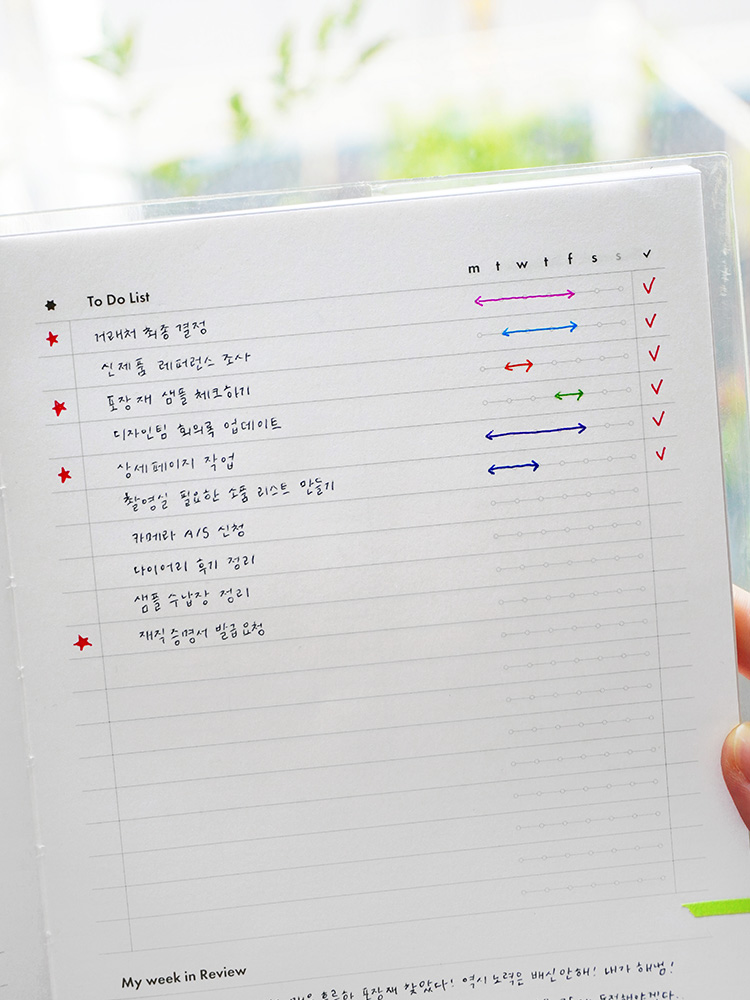 m t w t f s s ✓
To Do List
거래처 최종 결정
신제품 레퍼런스 조사
포장재 샘플 체크하기
디자인팀 회의록 업데이트
상세페이지 작업
촬영실 필요한 소품 리스트 만들기
카메라 A/S 신청
다이어리 후기 정리
샘플 수납장 정리
재직증명서 발급요청
My week in Review
포장재 찾았다! 역시 노력은 배신안해! 내가 해냄!